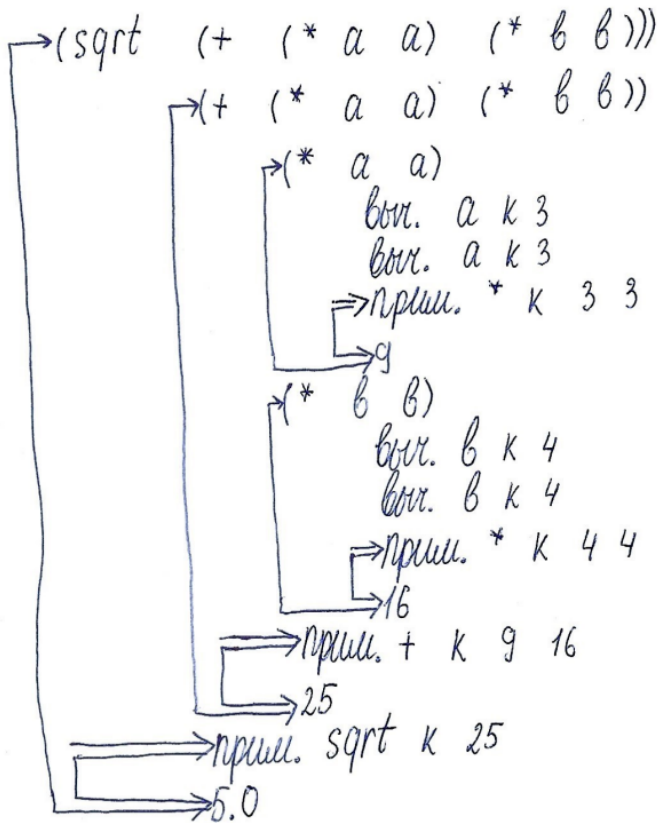 (sqrt (+ (* а а) (* в в)))
(+ (* а а) (* в в))
(* а а)
выч. а к 3
выч. а к 3
прим. * к 3 3
9
(* в в)
выч. в к 4
выч. в к 4
прим. * к 4 4
16
прим. + к 9 16
25
прим. sqrt к 25
5.0